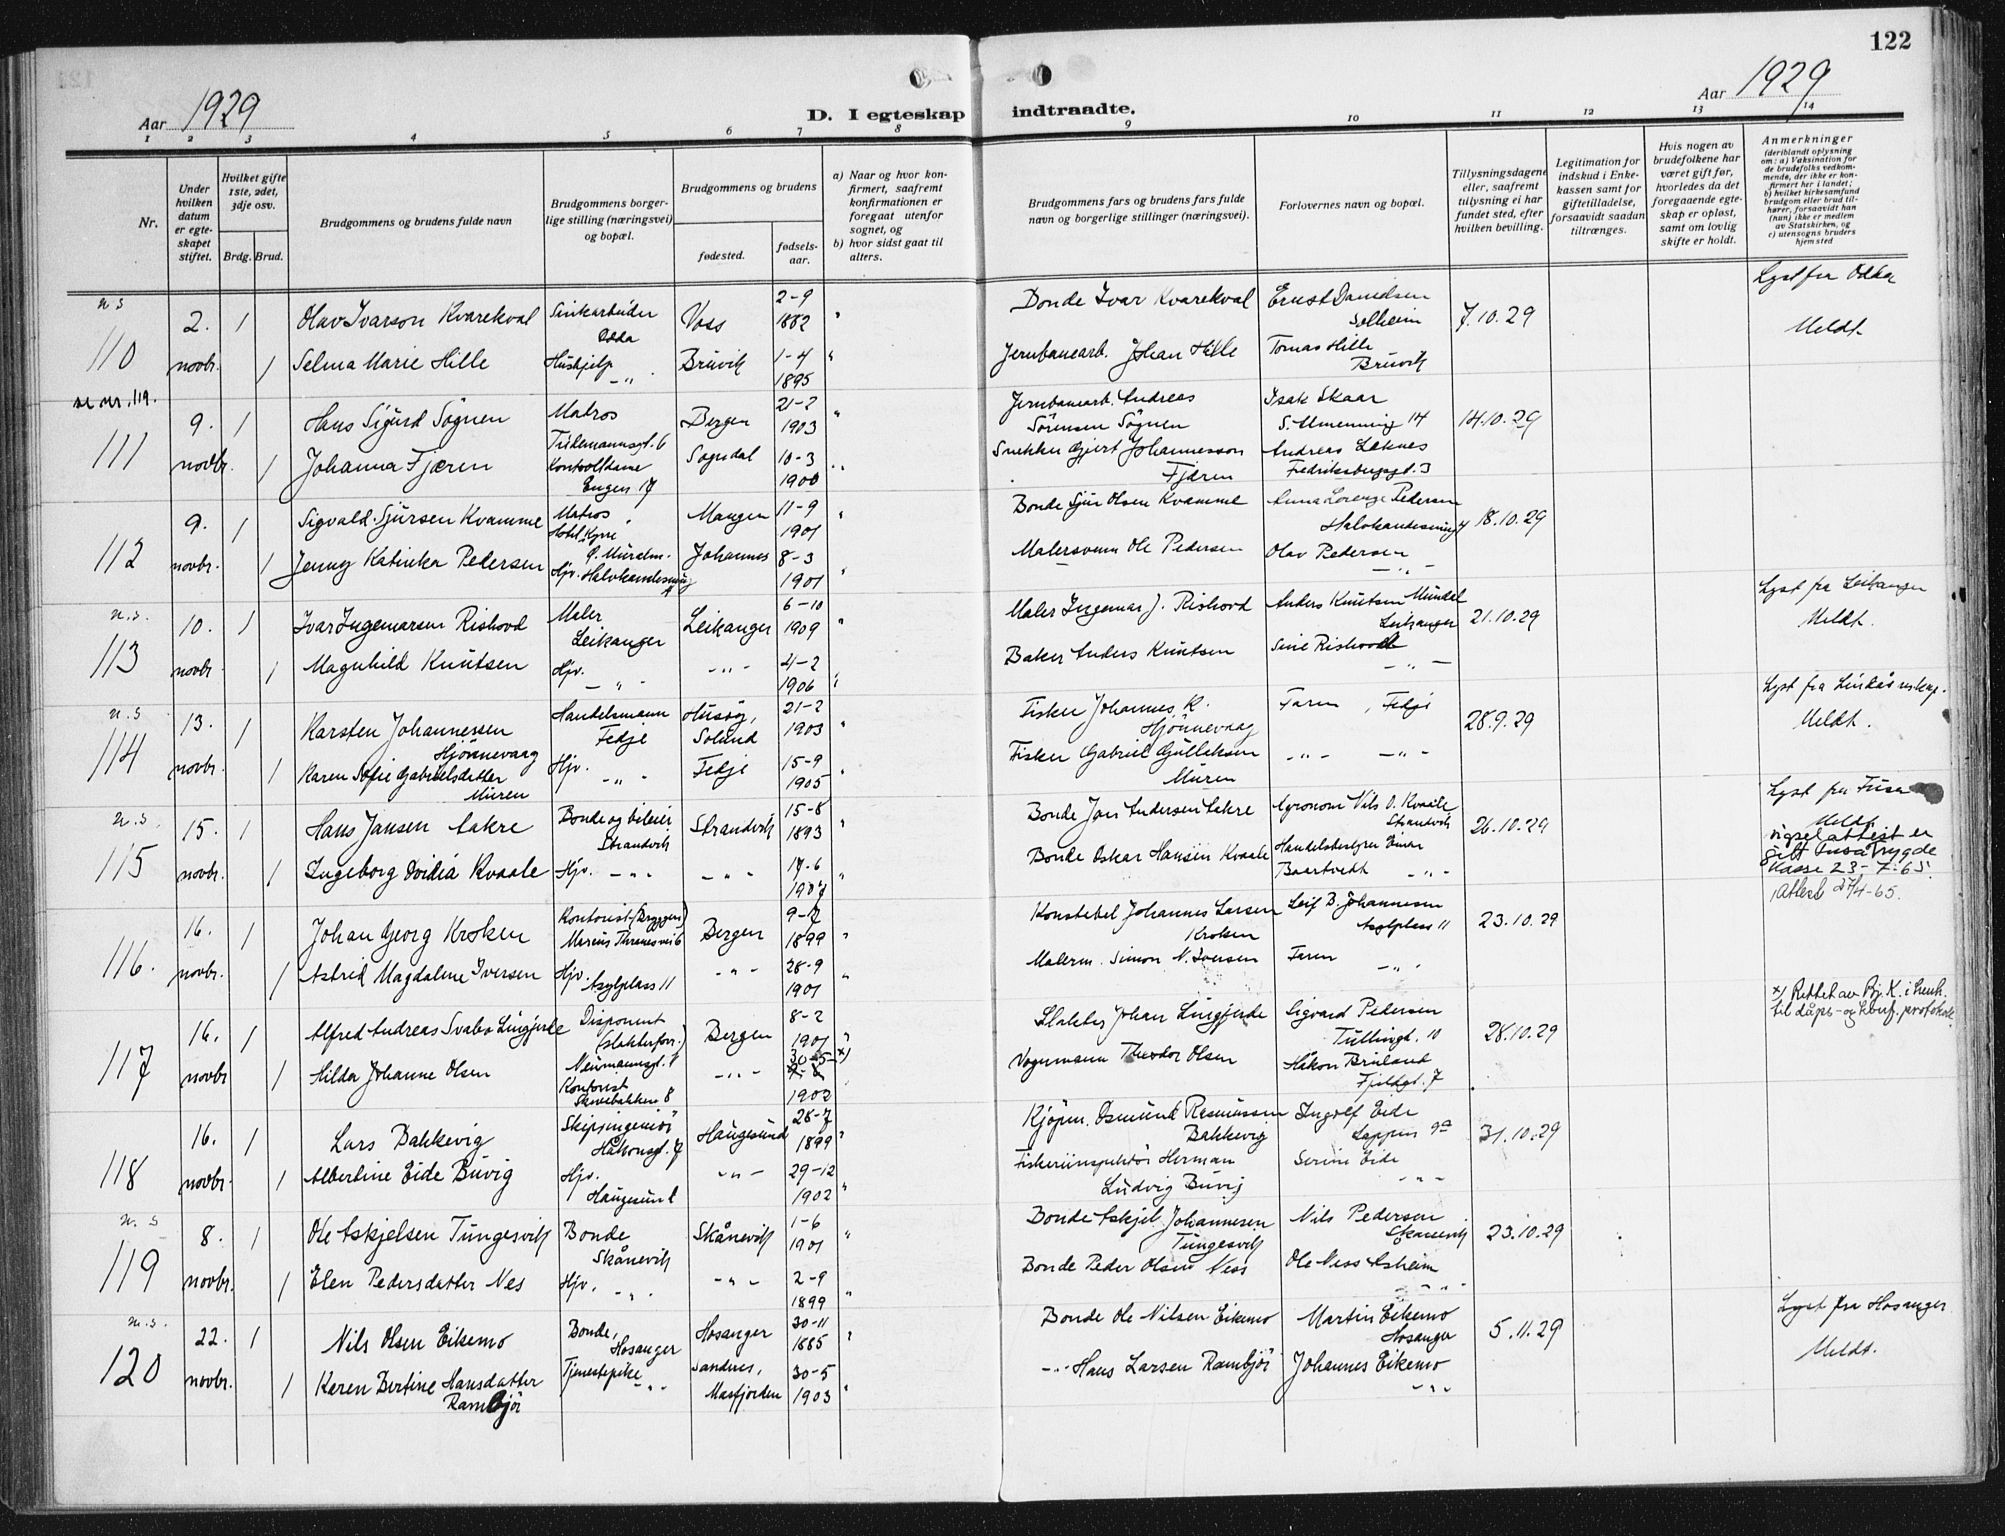 122
Aar 1929
D. I egteskap indtraadte.
Aar 1929
1 2 3 4 5 6 7 8 9 10 11 12 13 14
Nr.
Under hvilken datum er egteskapet stiftet.
Hvilket gifte 1ste, 2det, 3dje osv.
Brdg. Brud.
Brudgommens og brudens fulde navn
Brudgommens borgerlige stilling (næringsvei) og bopæl.
Brudgommens og brudens
fødested.
fødselsaar.
a) Naar og hvor konfirmert, saafremt konfirmationen er foregaat utenfor sognet, og
b) hvor sidst gaat til alters.
Brudgommens og brudens fars fulde navn og borgerlige stillinger (næringsvei).
Forlovernes navn og bopæl.
Tillysningsdagene eller, saafremt tillysning ei har fundet sted, efter hvilken bevilling.
Legitimation for indskud i Enkekassen samt for giftetilladelse, forsaavidt saadan tiltrænges.
Hvis nogen av brudefolkene har været gift før, hvorledes da det foregaaende egteskap er opløst, samt om lovlig skifte er holdt.
Anmerkninger
(deriblandt oplysning om: a) Vaksination for de brudefolks vedkommende, der ikke er konfirmert her i landet; b) hvilket kirkesamfund brudgom eller brud tilhører, forsaavidt han (hun) ikke er medlem av Statskirken, og c) utensogns bruders hjemsted
u.s
110 2. novbr. 1 Olav Ivarson Kvarekval Sinkarbeider Odda Voss 2-9 1882 " Bonde Ivar Kvarekval Ernst Danielsen Solheim 7.10.29 Lyst fra Odda Meldt.
1 Selma Marie Hille Hushjelp -"- Bruvik 1-4 1895 " Jernbanearb. Johan Hille Tomas Hille Bruvik
se nr. 119.
111 9. novbr. 1 Hans Sigurd Sögnen Matros Tidemannsgt. 6 Bergen 21-2 1903 " Jernbanearb. Andreas Sörensen Sögnen Isak Skaar 14 14.10.29
1 Johanna Fjæren Kontordame Engen 17 Sogndal 10-3 1900 " Snekker Gjert Johannesson Fjæren Andreas Løknes Fredriksbergsgt. 3
112 9. novbr. 1 Sigvald Sjursen Kvamme Matros Manger 11-9 1901 " Bonde Sjur Olsen Kvamme Anna Lorenze Pedersen 18.10.29
1 Jenny Katinka Pedersen Hjv. Johannes 8-3 1901 " Malersvenn Ole Pedersen Olav Pedersen -"-
u.s.
113 10. novbr. 1 Ivar Ingemarsen Rishovd Maler Leikanger Leikanger 6-10 1909 " Maler Ingemar J. Rishovd Anders Knutsen Mundal Leikanger 21.10.29 Lyst fra Leikanger Meldt.
1 Magnhild Knutsen Hjv. -"- -"- 4-2 1906 " Baker Anders Knutsen Sine Rishovd -"-
u.s
114 13. novbr. 1 Karsten Johannessen Hjönnevaag Handelsmann Fedje Husöy, Solund 21-2 1903 " Fisker Johannes K. Hjönnevaag Faren, Fedje 28.9.29 Lyst fra Lindås Meldt.
1 Karen Sofie Gabrielsdatter Muren Hjv. -"- Fedje 15-9 1905 " Fisker Gabriel Gulleksen Muren -"- -"-
u.s.
115 15. novbr. 1 Hans Jansen Aakre Bonde og bileier Strandvik Strandvik 15-8 1893 " Bonde Jan Andersen Aakre Agronom Nils O. Kvaale Strandvik 26.10.29 Lyst fra Fusa Meldt vigselattest er gitt Fusa Trygdekasse 23-7-65.
1 Ingeborg Ovidia Kvaale Hjv. -"- -"- 17-6 1907 " Bonde Oskar Hansen Kvaale Handelsbestyrer Einar Baartvedt -"- Attest 27/4-65.
116. 16. novbr. 1 Johan Georg Kroken Kontorist (Bryggeri) Marcus Thranesvei 6 Bergen 9-7 1899 " Konstebel Johannes Larsen Kroken Leif B. Johannesen Asylplass 11 23.10.29
1 Astrid Magdalene Iversen Hjv. Asylplass 11 -"- 28-9 1901 " Malerm. Simon N. Iversen Faren -"-
117 16. novbr 1 Alfred Andreas Svabo Lingjerde Disponent (slakterforr.) Neumannsgt. 1 Bergen 8-2 1901 " Slakter Johan Lingjerde Sigvard Pedersen Tullingt. 10 28.10.29 x) Rettet av Bj. K. i henh. til dåps- og konf. protokoll.
1 Hilda Johanne Olsen Kontorist Skivebakken 8 -"- 30-5 x) 1902 Vognmann Theodor Olsen Håkon Bruland Fjeldgt. 7
118 16. novbr. 1 Lars Bakkevig Skipsingeniör Håkonsgt. 7 Haugesund 28-7 1899 " Kjöpm. Osmund Rasmussen Bakkevig Ingolf Eide Lappen 9a 31.10.29
1 Albertine Eide Buvig Hjv. Haugesund -"- 29-12 1902 " Fiskeriinspektör Herman Ludvig Buvig Serine Eide -"-
u.s
119 8. novbr. 1 Ole Askjelsen Tungesvik Bonde Skånevik Skånevik 1-6 1901 " Bonde Askjel Johannesen Tungesvik Nils Pedersen Skånevik 23.10.29
1 Elen Pedersdatter Nes Hjv. -"- -"- 2-9 1899 " Bonde Peder Olsen Ness Ole Ness Asheim -"-
u.s.
120 22. novbr. 1 Nils Olsen Eikemo Bonde, Hosanger Hosanger 30-11 1885 " Bonde Ole Nilsen Eikemo Martin Eikemo Hosanger 5.11.29 Lyst fra Hosanger Meldt.
1 Karen Bertine Hansdatter Rambjör Tjenestepike -"- Sandnes, Masfjorden 30-5 1903 " -"- Hans Larsen Rambjör Johannes Eikemo -"-